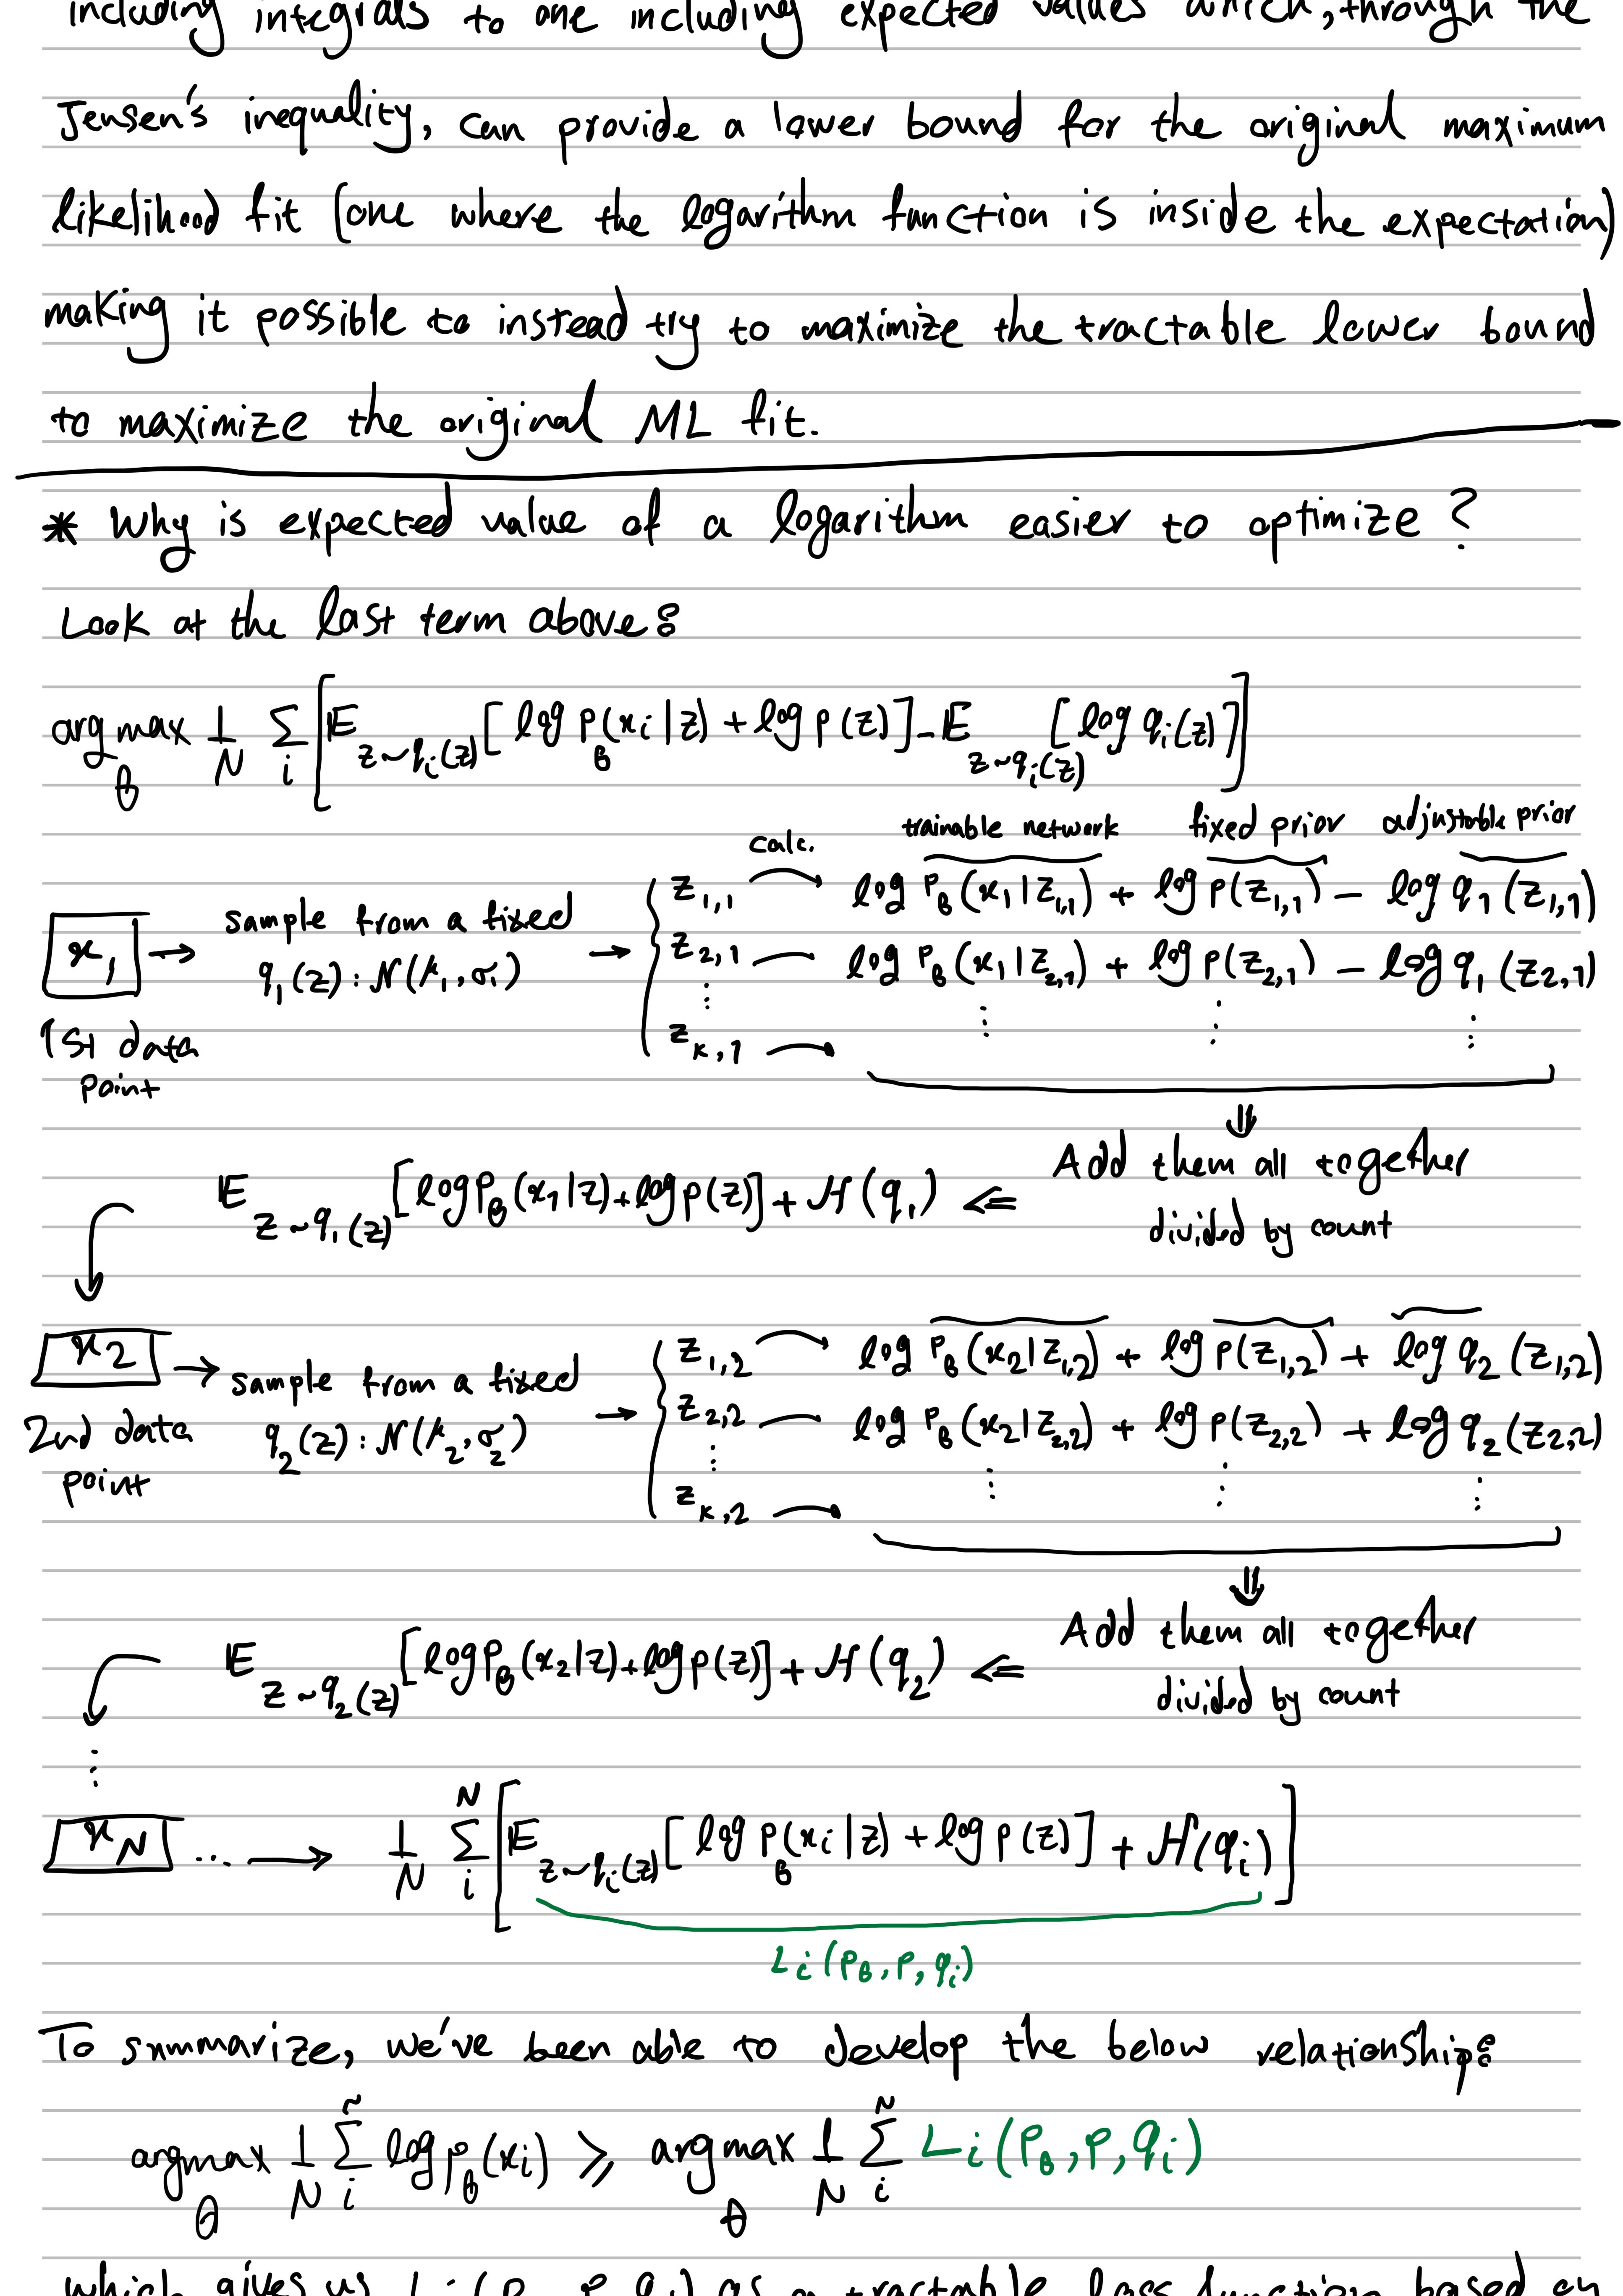 including integrals to one including expected values which, through the
Jensen's inequality, can provide a lower bound for the original maximum
likelihood fit (one where the logarithm function is inside the expectation)
making it possible to instead try to maximize the tractable lower bound
to maximize the original ML fit.
* Why is expected value of a logarithm easier to optimize?
Look at the last term above:
argmax_θ 1/N Σ_i [ E_{z~q_i(z)} [ log p_θ(x_i|z) + log p(z) ] - E_{z~q_i(z)} [ log q_i(z) ] ]
calc. trainable network fixed prior adjustable prior
x_1 → sample from a fixed q_1(z): N(μ_1, σ_1) →
z_{1,1} log p_θ(x_1|z_{1,1}) + log p(z_{1,1}) - log q_1(z_{1,1})
z_{2,1} log p_θ(x_1|z_{2,1}) + log p(z_{2,1}) - log q_1(z_{2,1})
⋮ ⋮ ⋮ ⋮
z_{K,1}
1st data
point
⇓
Add them all together
divided by count
E_{z~q_1(z)} [log p_θ(x_1|z) + log p(z)] + H(q_1) ⇐
x_2 → sample from a fixed q_2(z): N(μ_2, σ_2) →
z_{1,2} log p_θ(x_2|z_{1,2}) + log p(z_{1,2}) + log q_2(z_{1,2})
z_{2,2} log p_θ(x_2|z_{2,2}) + log p(z_{2,2}) + log q_2(z_{2,2})
⋮ ⋮ ⋮ ⋮
z_{K,2}
2nd data
point
⇓
Add them all together
divided by count
E_{z~q_2(z)} [log p_θ(x_2|z) + log p(z)] + H(q_2) ⇐
⋮
x_N ... → 1/N Σ_i^N [ E_{z~q_i(z)} [ log p_θ(x_i|z) + log p(z) ] + H(q_i) ]
L_i(p_θ, p, q_i)
To summarize, we've been able to develop the below relationship:
argmax_θ 1/N Σ_i^N log p_θ(x_i) ⩾ argmax_θ 1/N Σ_i^N L_i(p_θ, p, q_i)
which gives us L_i(p_θ, p, q_i) as a tractable loss function based on